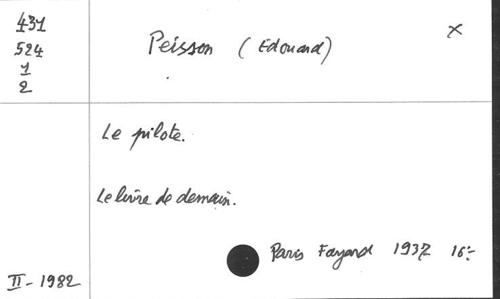 431
524
1
2
Peisson (Edouard)
X
Le pilote.
Le livre de demain.
Paris Fayard 1937 16:-
II-1982